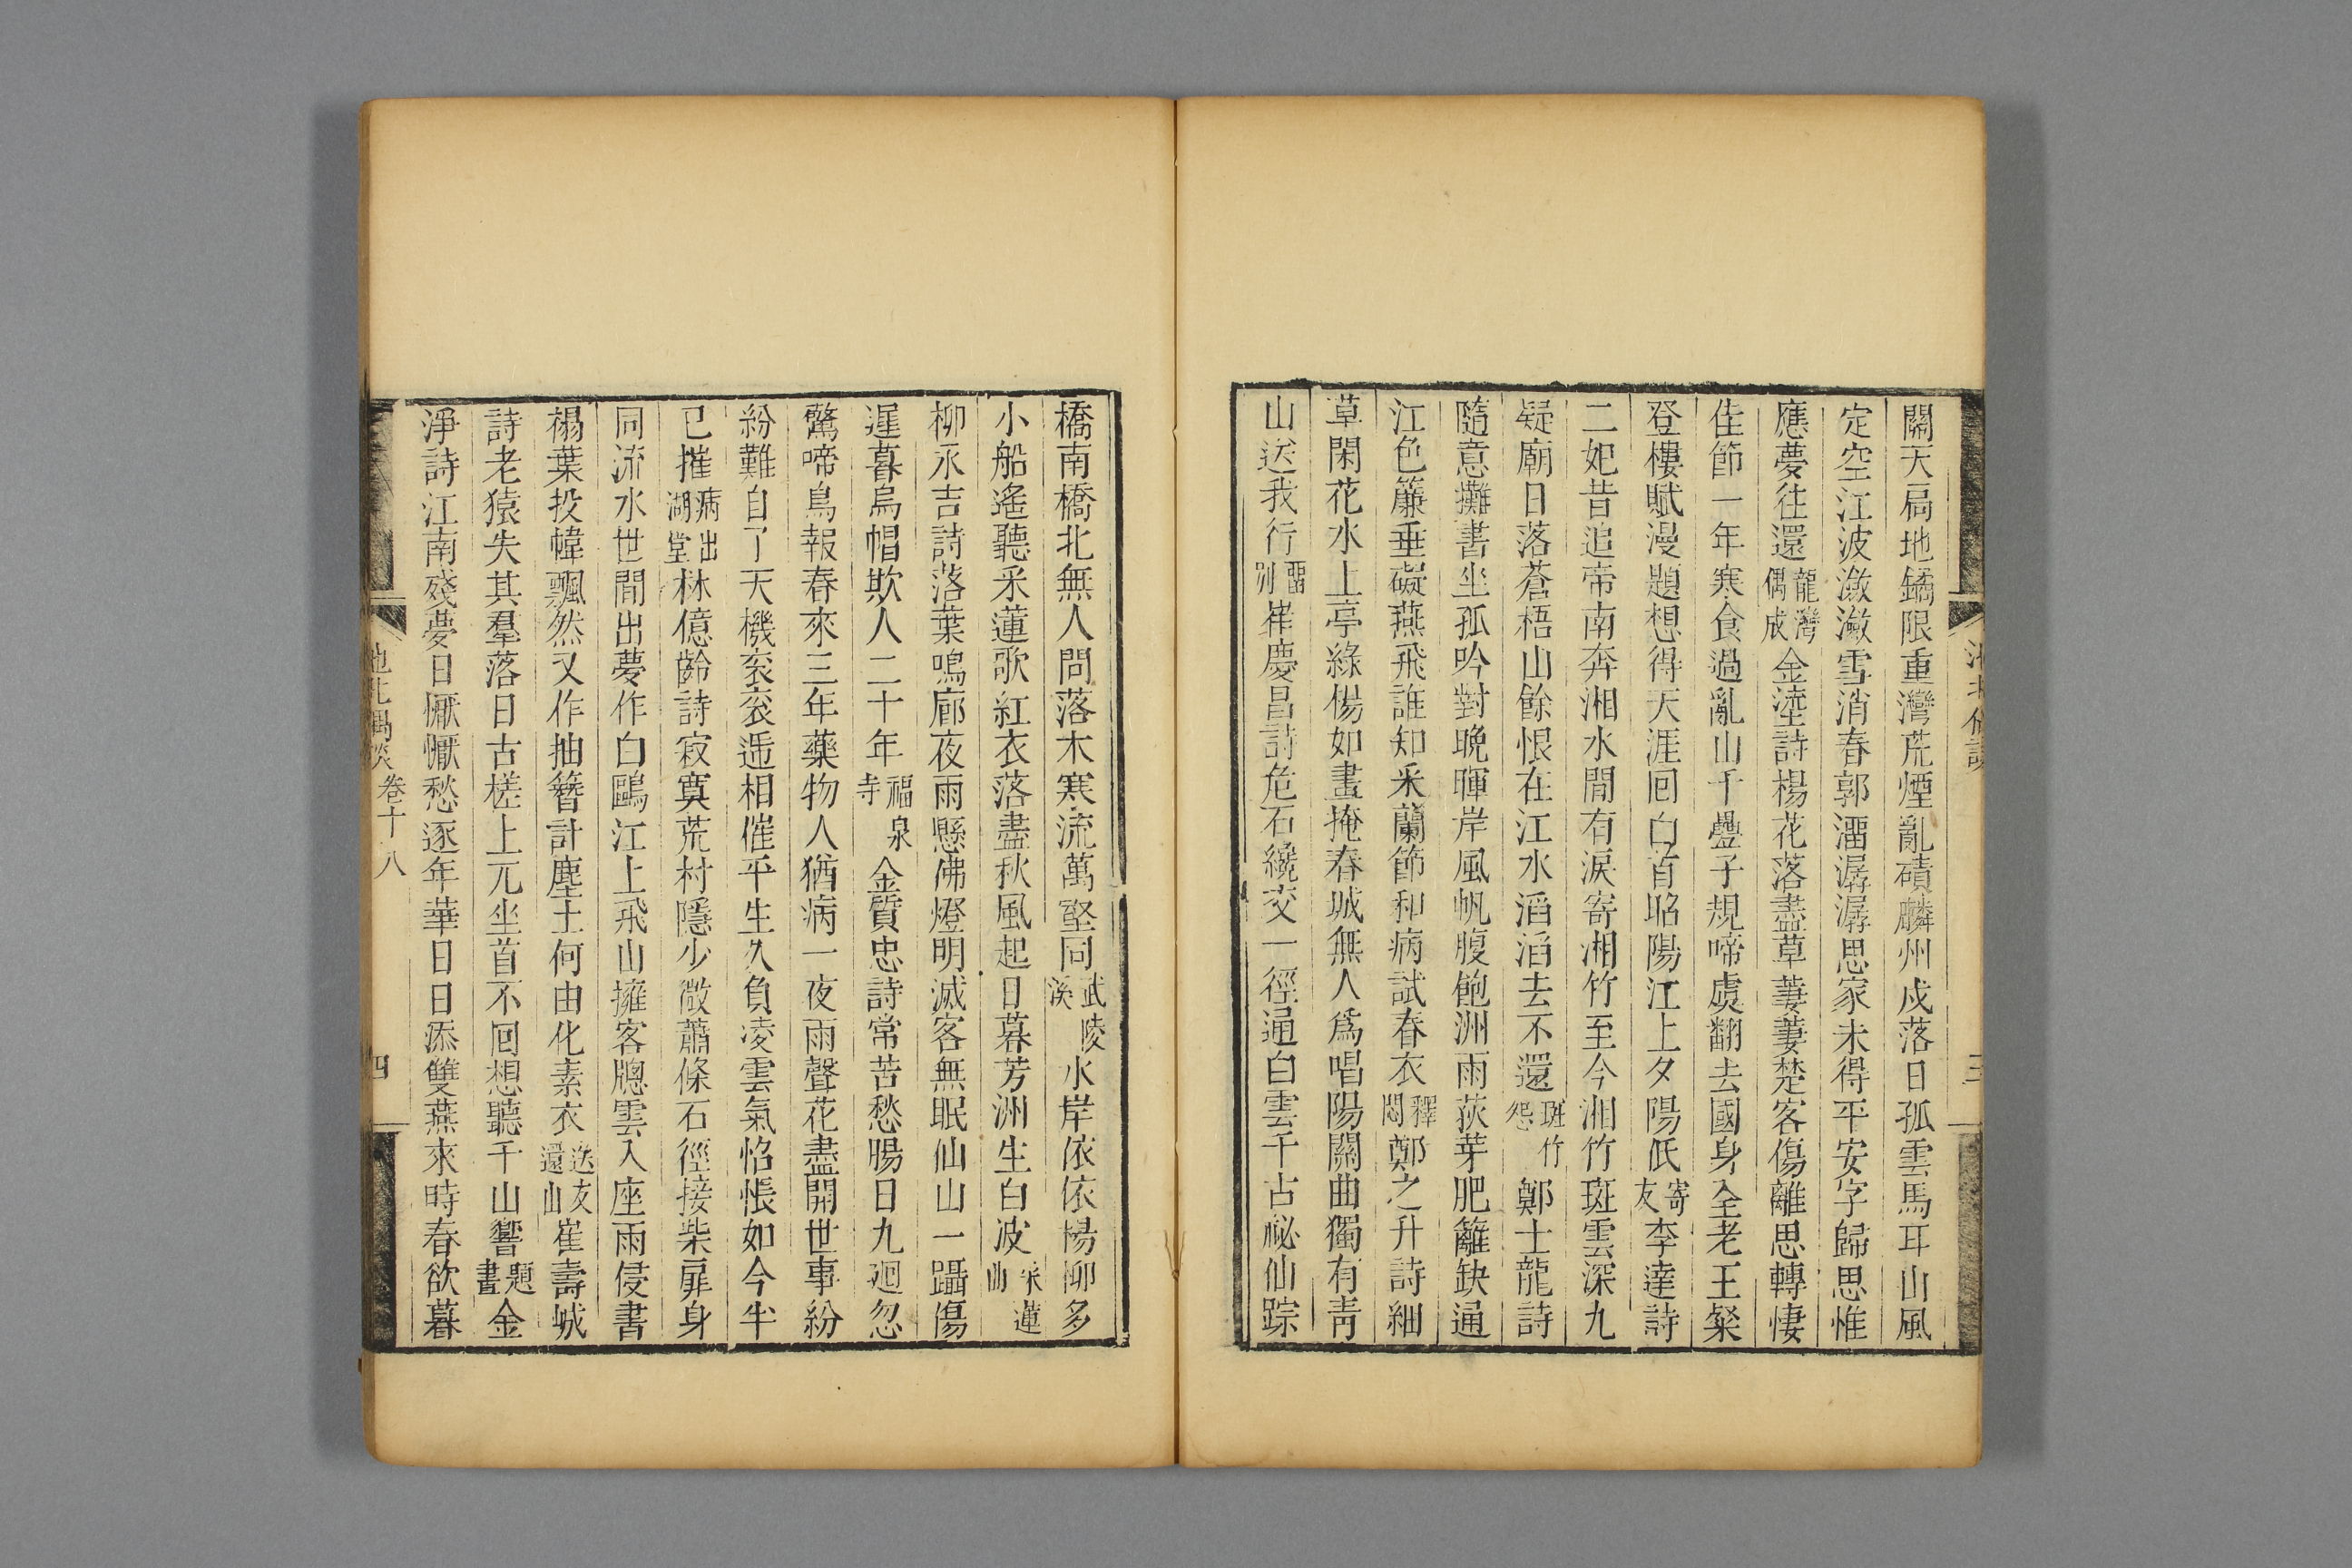 關天局地鐍限重灣荒煙亂磧麟州戍落日孤雲馬耳山風
定空江波瀲灩雪消春郭溜潺潺思家未得平安字歸思惟
應夢往還龍灣偶成金𡍼詩楊花落盡草萋萋楚客傷離思轉悽
佳節一年寒食過亂山千疊子規啼虞翻去國身全老王粲
登樓賦漫題想得天涯回白首昭陽江上夕陽低寄友李達詩
二妃昔追帝南奔湘水間有淚寄湘竹至今湘竹斑雲深九
疑廟日落蒼梧山餘恨在江水滔滔去不還斑竹怨鄭士龍詩
隨意攤書坐孤吟對晚暉岸風帆腹飽洲雨荻芽肥籬缺通
江色簾垂礙燕飛誰知釆蘭節和病試春衣釋悶鄭之升詩細
草閑花水上亭綠楊如畫掩春城無人爲唱陽關曲獨有靑
山送我行畱别崔慶昌詩危石纔交一徑通白雲千古祕仙踪
三
橋南橋北無人問落木寒流萬壑同武陵溪水岸依依楊柳多
小船遙聽釆蓮歌紅衣落盡秋風起日暮芳洲生白波采蓮曲
柳永吉詩落葉鳴廊夜雨懸佛燈明滅客無眠仙山一躡傷
遲暮烏帽欺人二十年福泉寺金質忠詩常苦愁腸日九廻忽
驚啼鳥報春來三年藥物人猶病一夜雨聲花盡開世事紛
紛難自了天機衮衮遞相催平生久負凌雲氣怊悵如今半
已摧病出湖堂林億齡詩寂寞荒村隱少微蕭條石徑接柴扉身
同流水世間出夢作白鷗江上飛山擁客牕雲入座雨侵書
榻葉投幃飄然又作抽簪計塵土何由化素衣送友還山崔壽峸
詩老猿失其羣落日古槎上兀坐首不回想聽千山響題畫金
淨詩江南殘夢日懨懨愁逐年華日日添雙燕來時春欲暮
池北偶談 卷十八 四